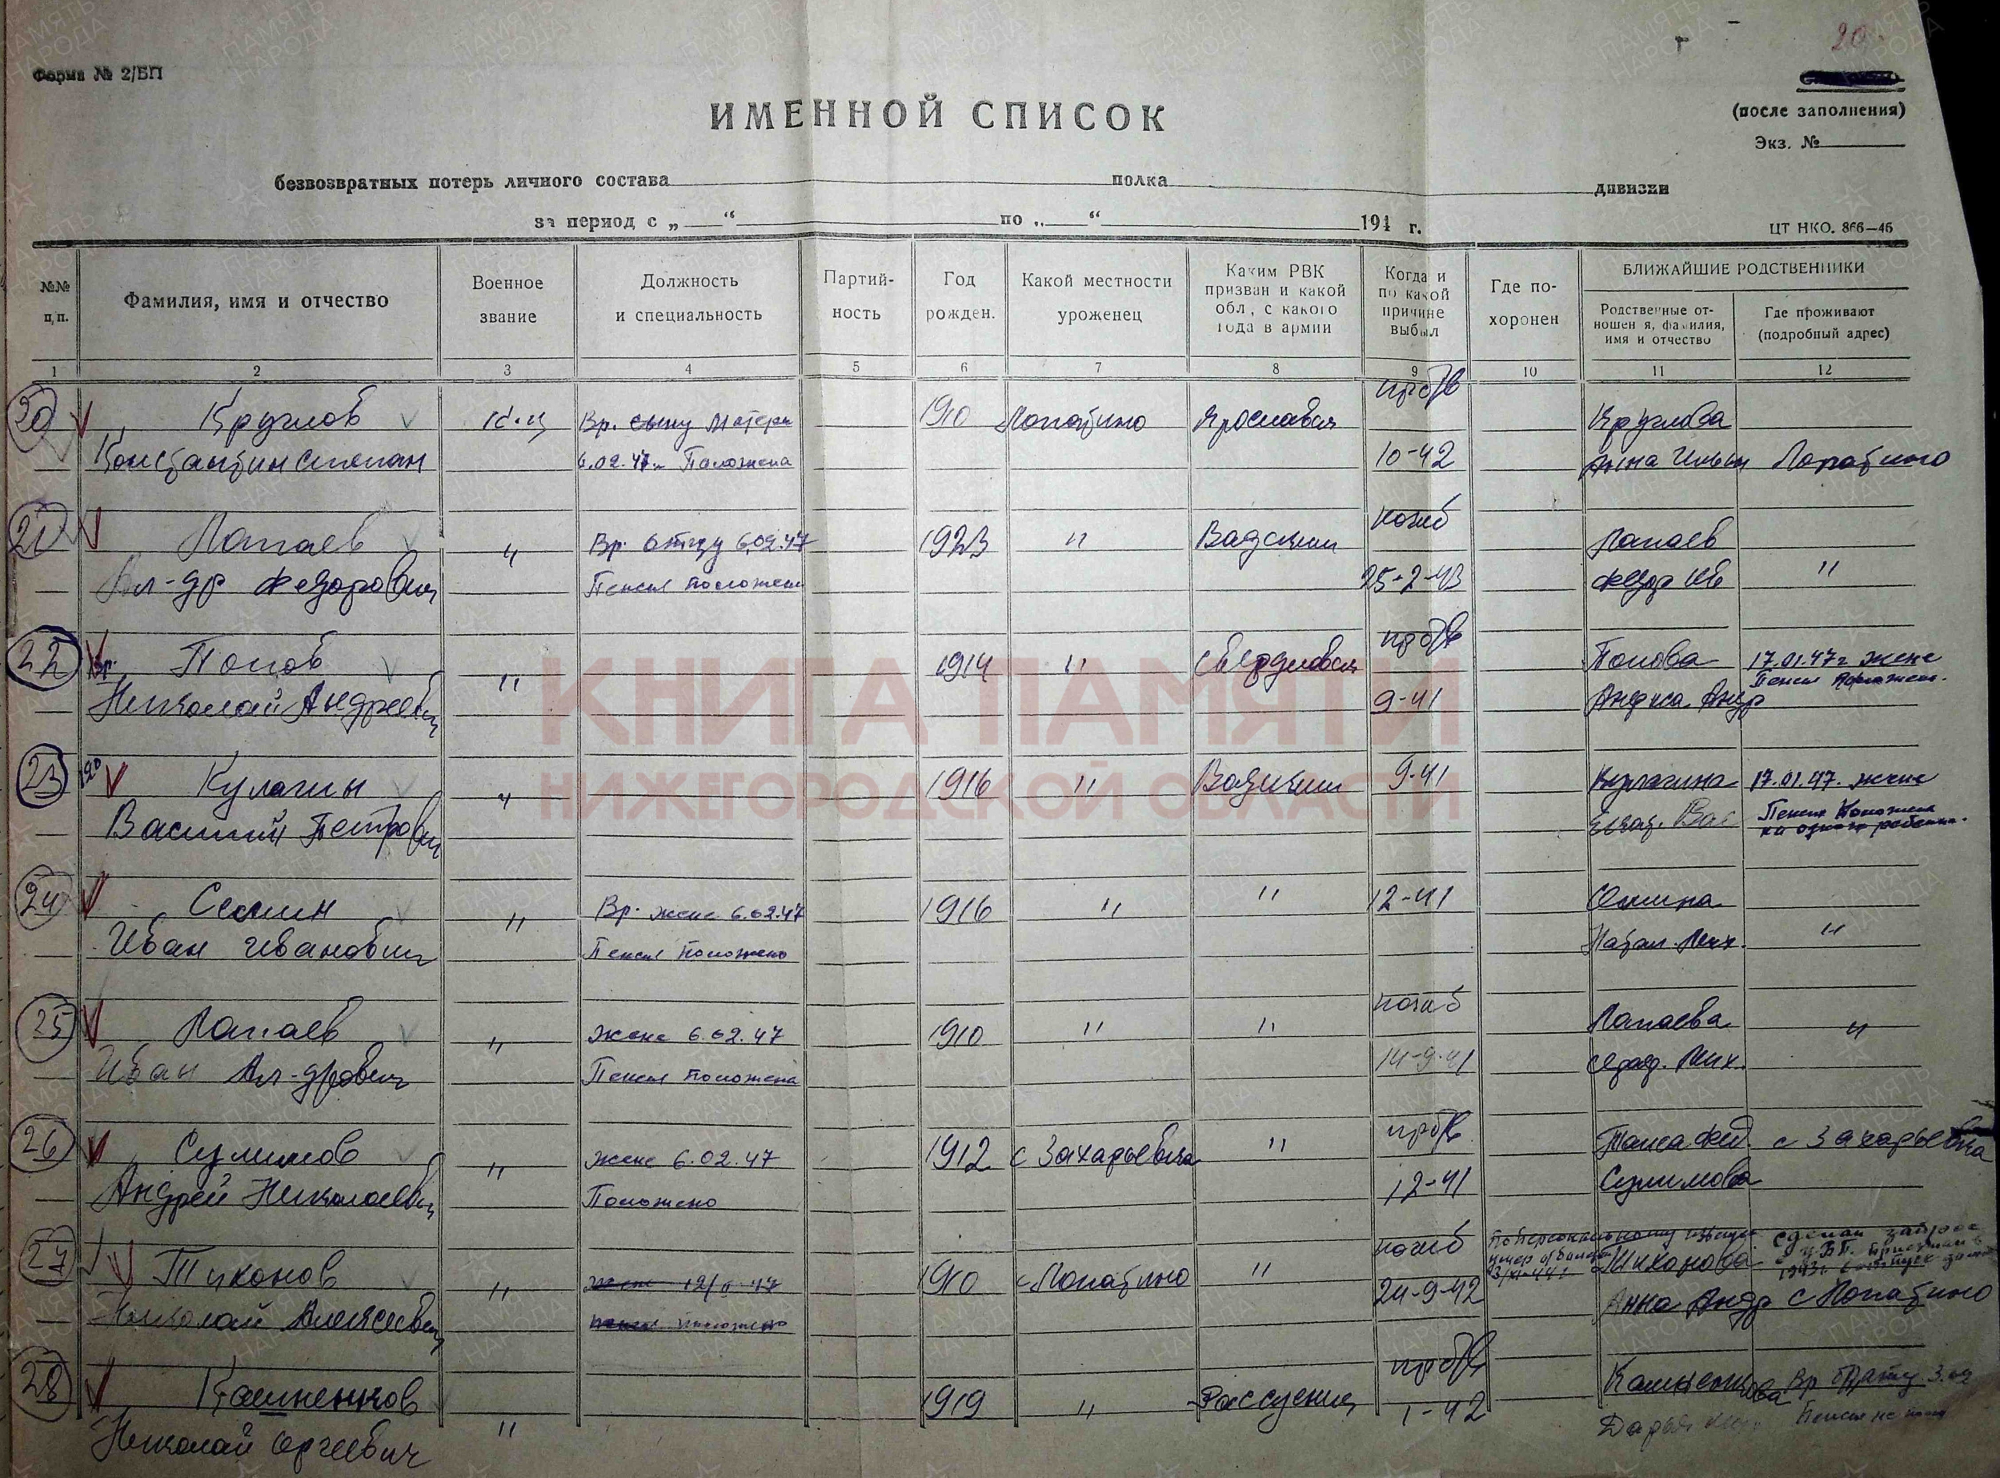 20
Форма № 2/БП
ИМЕННОЙ СПИСОК
(после заполнения)
Экз. №
безвозвратных потерь личного состава полка дивизии
за период с „ “ по „ “ 194 г.
ЦТ НКО. 866—46
№№ п, п.
Фамилия, имя и отчество
Военное звание
Должность и специальность
Партий- ность
Год рожден.
Какой местности уроженец
Каким РВК призван и какой обл, с какого года в армии
Когда и по какой причине выбыл
Где по- хоронен
БЛИЖАЙШИЕ РОДСТВЕННИКИ
Родственные от- ношен я, фамилия, имя и отчество
Где проживают (подробный адрес)
1 2 3 4 5 6 7 8 9 10 11 12
20 Круглов к-ц Вр. сыну Матери 1910 Лопатино Ярославск проп/в Круглова
Константин Степан 6.02.47 Положена 10-42 Анна Ильин Лопатино
21 Лапаев " Вр. отцу 6.02.47 1923 " Вадским погиб Лапаев
Ал-др Федорович Пенсия положена 25-2-43 Федор Ив "
22 Вр. Попов " 1914 " Свердловск проп/в Попова 17.01.47г жене
Николай Андреевич 9-41 Анфиса Андр Пенсия положен.
23 Вр Кулагин " 1916 " Вадским 9-41 Кулагина 17.01.47. жене
Василий Петрович Елизав. Вас Пенсия положена
на одного ребенка.
24 Семин " Вр. жене 6.02.47 1916 " " 12-41 Семина
Иван Иванович Пенсия положено Натал. Мих. "
25 Лапаев " жене 6.02.47 1910 " " погиб Лапаева "
Иван Ал-дрович Пенсия положена 14-9-41 Мих.
26 Сулимов " жене 6.02.47 1912 с Захарьевка " проп/в Таиса Фед. с Захарьевка
Андрей Николаевич Положено 12-41 Сулимова
27 Тихонов " жене 12/II-47 1910 с Лопатино " погиб Тихонова сделан запрос
Николай Алексеевич пенсия положено 24-9-42 Анна Андр с Лопатино
28 Кашненков " 1919 " проп/в Кашненкова Вр брату 3.02
Николай Сергеевич 1-42 Дарья Пенсия не
КНИГА ПАМЯТИ
НИЖЕГОРОДСКОЙ ОБЛАСТИ
ПАМЯТЬ НАРОДА